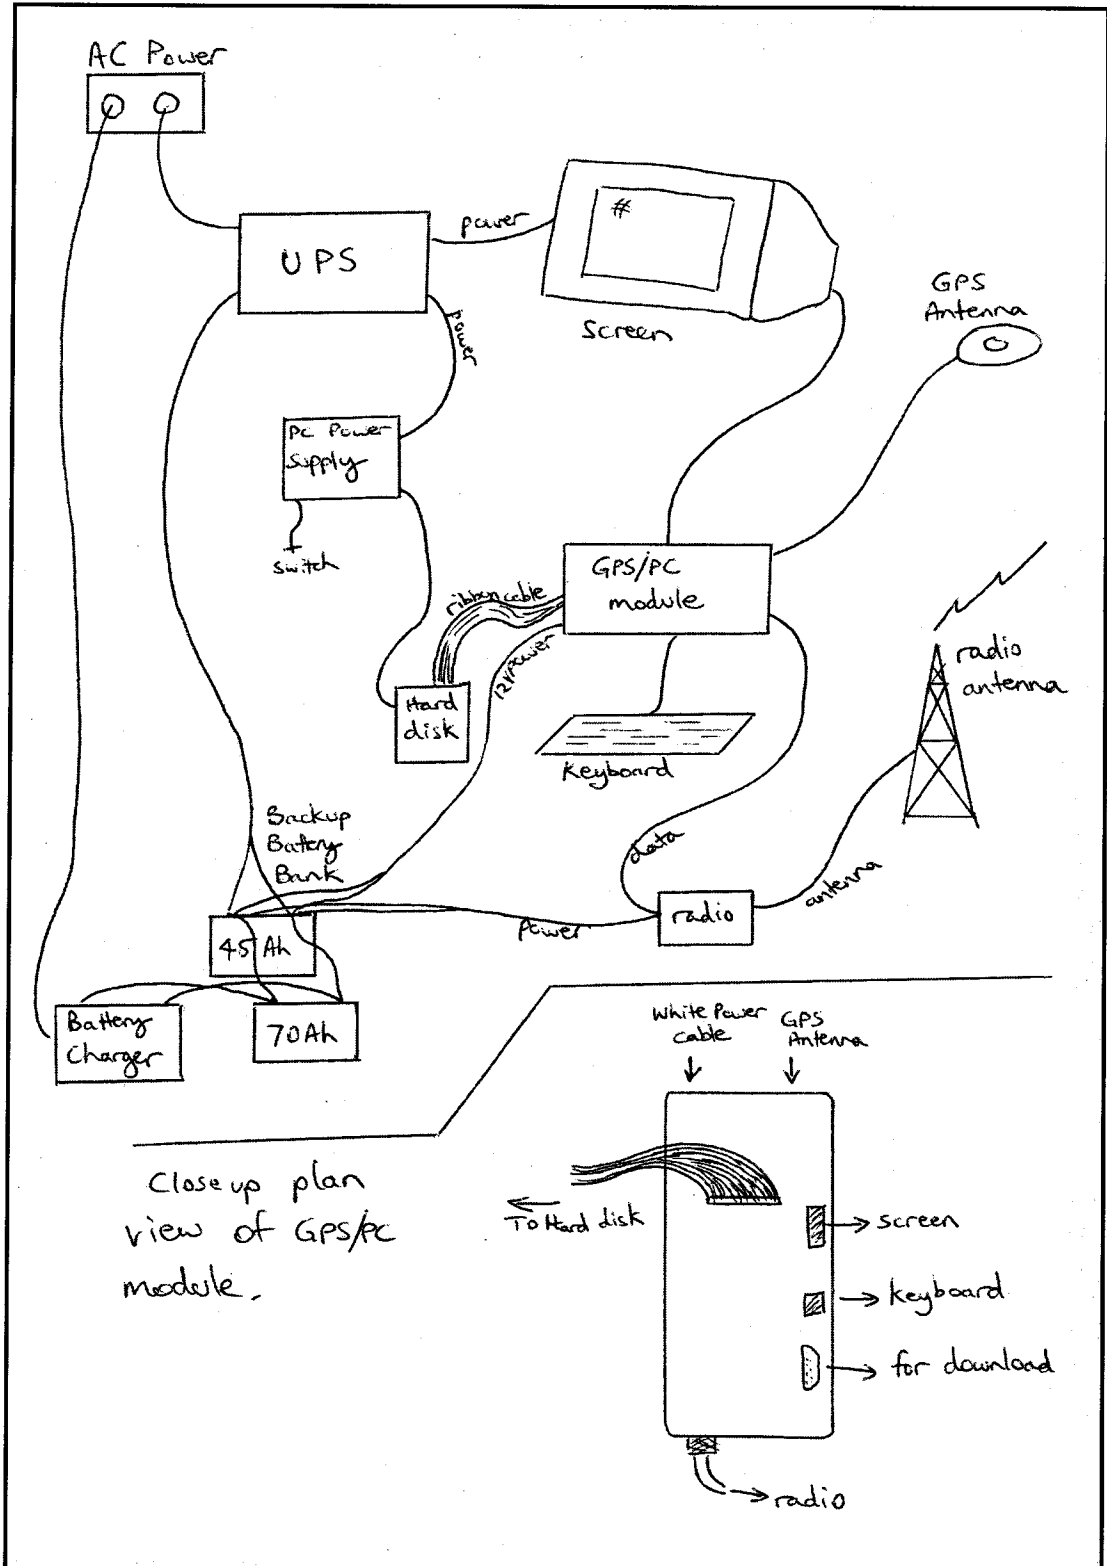 AC Power
UPS
power
#
Screen
GPS
Antenna
power
PC Power
Supply
switch
GPS/PC
module
ribbon cable
12V Power
radio
antenna
Hard
disk
Keyboard
Backup
Battery
Bank
data
antenna
radio
Power
45 Ah
70Ah
Battery
Charger
White Power
Cable
GPS
Antenna
Close up plan
view of GPS/PC
module.
To Hard disk
screen
keyboard
for download
radio